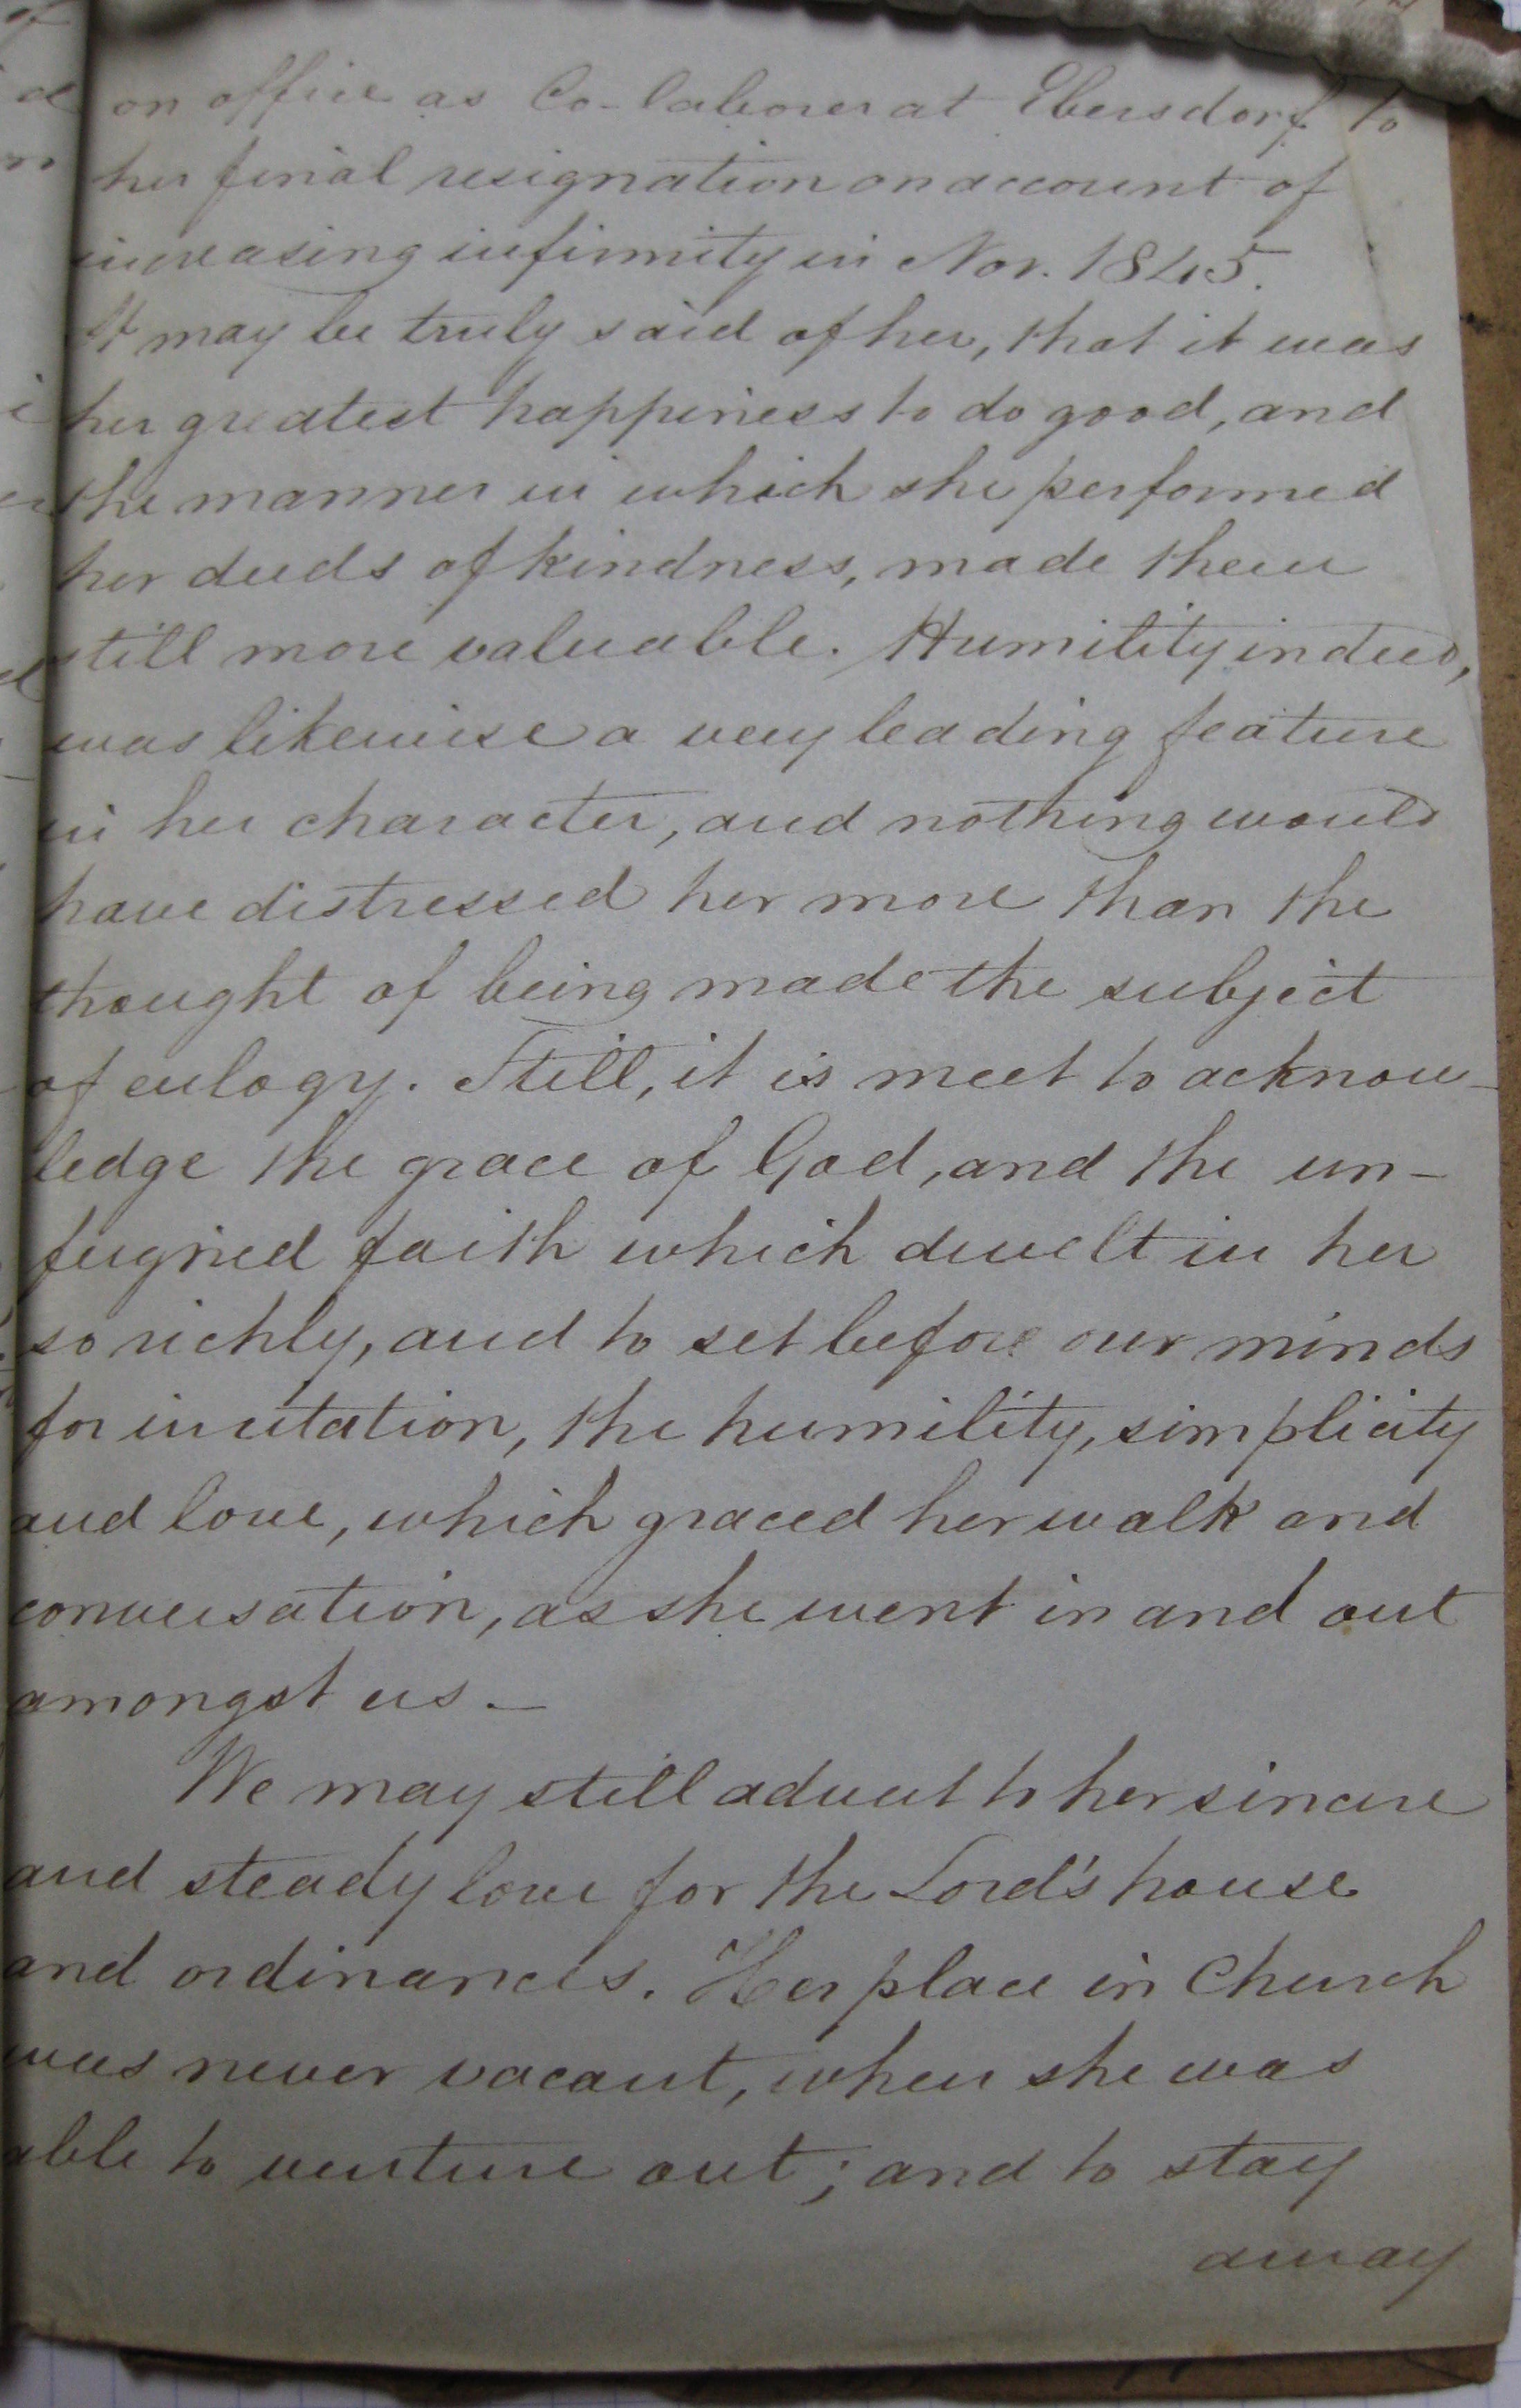 on office as Co-laborer at Ebersdorf to
her final resignation on account of
increasing infirmity in Nov. 1845.
It may be truly said of her, that it was
her greatest happiness to do good, and
the manner in which she performed
her deeds of kindness, made them
still more valuable. Humility indeed,
was likewise a very leading feature
in her character, and nothing would
have distressed her more than the
thought of being made the subject
of eulogy. Still, it is meet to acknow-
ledge the grace of God, and the un-
feigned faith which dwelt in her
so richly, and to set before our minds
for imitation, the humility, simplicity
and love, which graced her walk and
conversation, as she went in and out
amongst us. —
We may still advert to her sincere
and steady love for the Lord's house
and ordinances. Her place in Church
was never vacant, when she was
able to venture out; and to stay
away